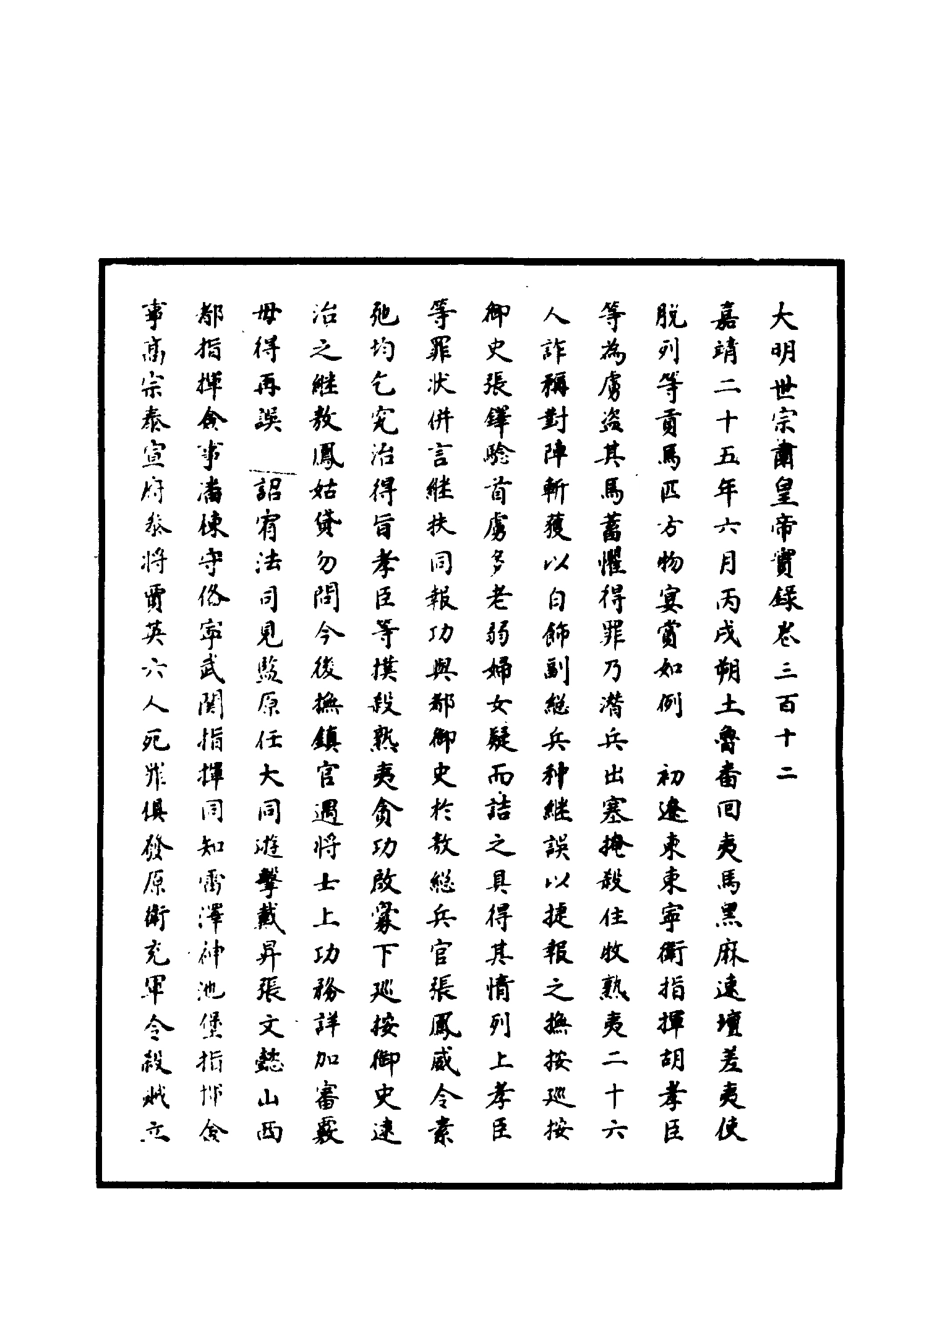 大明世宗肅皇帝實錄卷三百十二
嘉靖二十五年六月丙戌朔土魯番回夷馬黑麻速壇差夷使
脱列等貢馬匹方物宴賞如例　初遼東東寧衛指揮胡孝臣
等為虜盜其馬蓄懼得罪乃潛兵出塞掩殺住牧熟夷二十六
人詐稱對陣斬獲以白飾副總兵种継誤以捷報之撫按廵按
御史張鐸驗首虜多老弱婦女疑而詰之具得其情列上孝臣
等罪状併言継扶同報功與都御史於敖總兵官張鳳威令素
弛均乞究治得旨孝臣等撲殺熟夷貪功啟寡下廵按御史逮
治之継敖鳳姑貸勿問今後撫鎮官遇将士上功務詳加審覈
毋得再誤　詔宥法司見監原任大同遊擊戴昇張文懿山西
都指揮僉事潘棟守俻寧武関指揮同知雷澤神池堡指揮僉
事高宗泰宣府叅将賈英六人死罪俱發原衛充軍令殺贼立